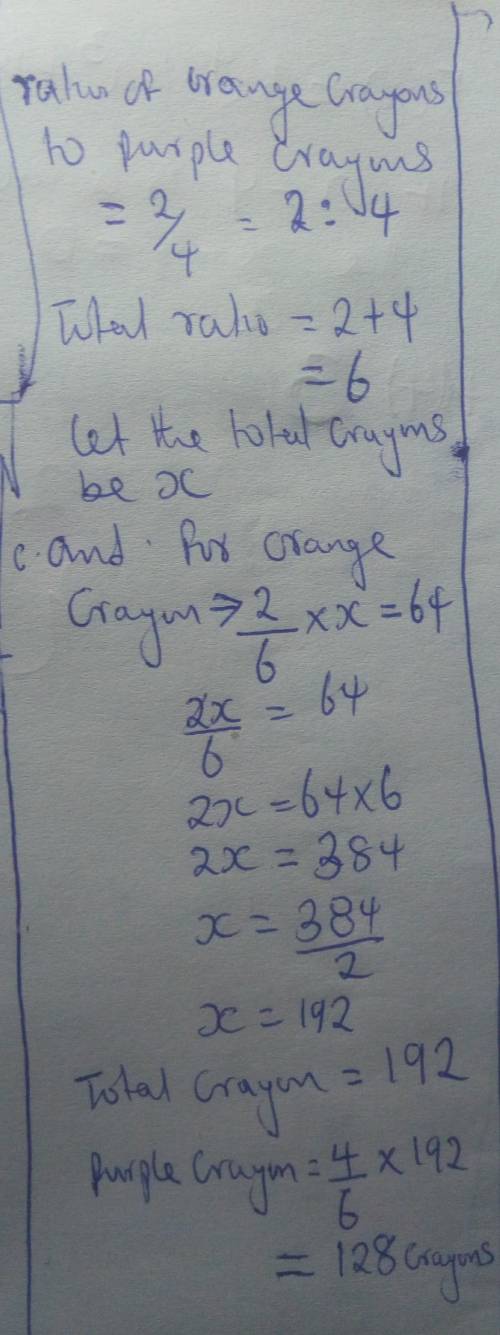 ratio of orange Crayons
to purple Crayons
= 2/4 = 2:4
Total ratio = 2+4
= 6
Let the total Crayons
be x
c. and. for orange
Crayon ⇒ 2/6 × x = 64
2x/6 = 64
2x = 64×6
2x = 384
x = 384/2
x = 192
Total Crayon = 192
purple Crayon = 4/6 × 192
= 128 Crayons